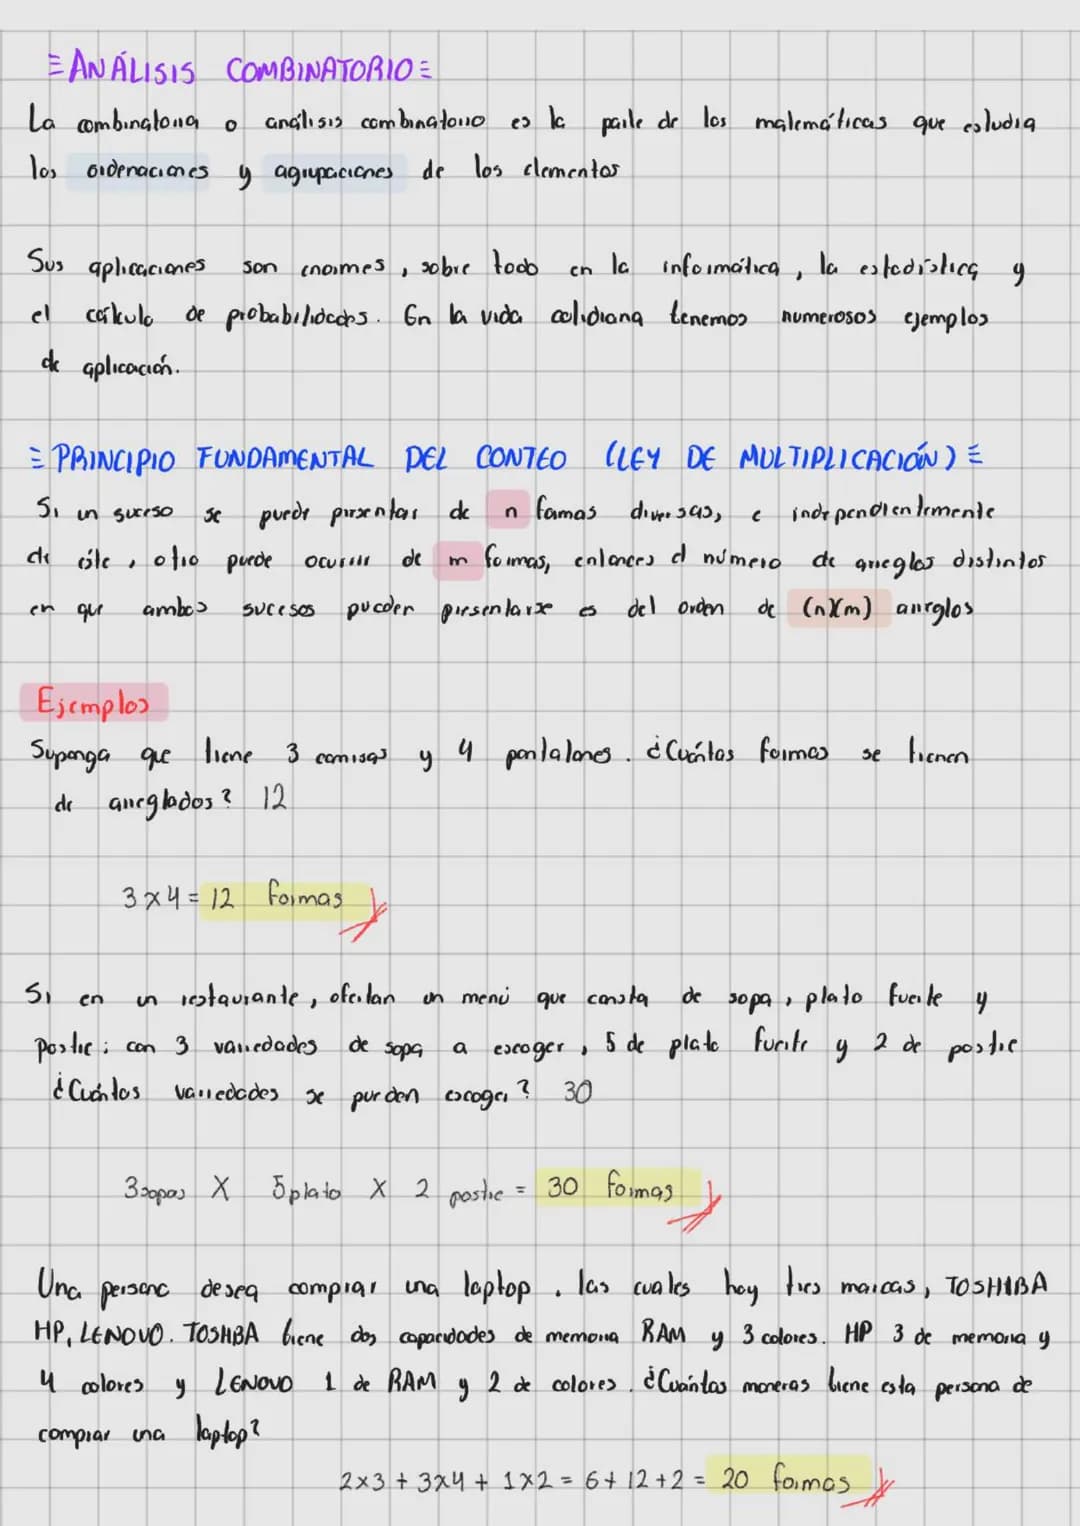 ANÁLISIS COMBINATORIO
La combinatoria o análisis combinatorio es la parte de las matemáticas que estudia
las ordenaciones y agrupaciones de los elementos
Sus aplicaciones son enormes, sobre todo en la informática, la estadística y
el cálculo de probabilidades. En la vida cotidiana tenemos numerosos ejemplos
de aplicación.
PRINCIPIO FUNDAMENTAL DEL CONTEO (LEY DE MULTIPLICACIÓN)
Si un suceso se puede presentar de n formas diversas, e independientemente
de éste, otro puede ocurrir de m formas, entonces el número de arreglos distintos
en que ambos sucesos pueden presentarse es del orden de (n)(m) arreglos
Ejemplos
Suponga que tiene 3 camisas y 4 pantalones. ¿Cuántas formas se tienen
de arreglados? 12
3 x 4 = 12 formas
Si en un restaurante, ofertan un menú que consta de sopa, plato fuerte y
postre; con 3 variedades de sopa a escoger, 5 de plato fuerte y 2 de postre
¿Cuántos variedades se pueden escoger? 30
3 sopas X 5 plato X 2 postre = 30 formas
Una persona desea comprar una laptop, las cuales hay tres marcas, TOSHIBA
HP, LENOVO. TOSHIBA tiene dos capacidades de memoria RAM y 3 colores. HP 3 de memoria y
4 colores y LENOVO 1 de RAM y 2 de colores. ¿Cuántas maneras tiene esta persona de
comprar una laptop?
2x3 + 3x4 + 1x2 = 6 + 12 + 2 = 20 formas